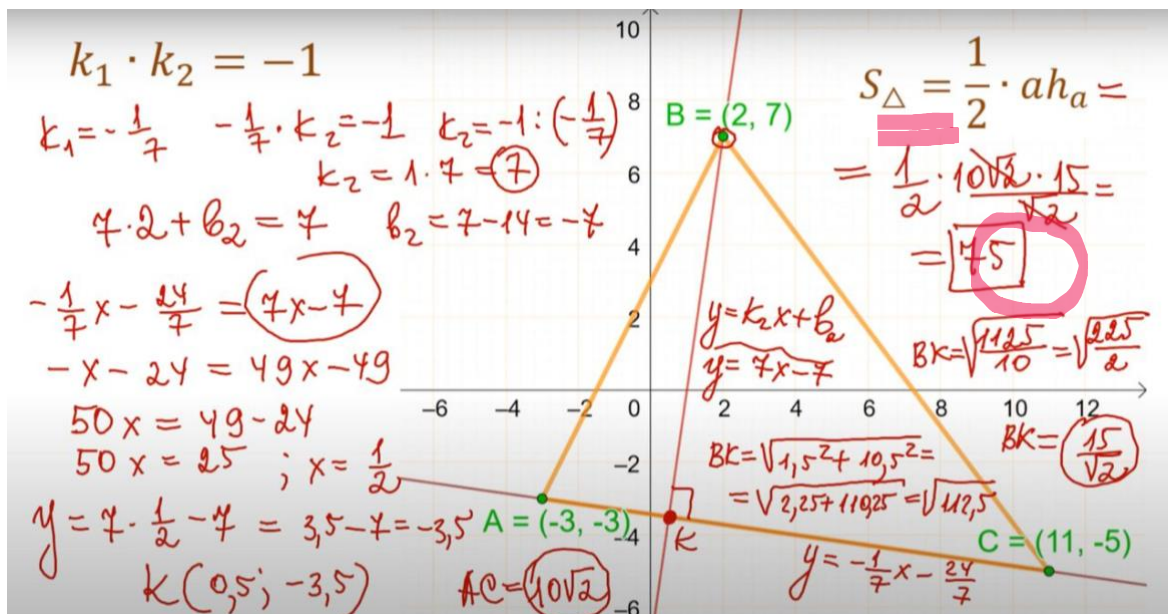 k₁ · k₂ = −1
k₁ = -1/7   -1/7 · k₂ = -1   k₂ = -1 : (-1/7)
k₂ = 1 · 7 = 7
7·2 + b₂ = 7   b₂ = 7 - 14 = -7
-1/7 x - 24/7 = 7x - 7
-x - 24 = 49x - 49
50x = 49 - 24
50x = 25 ; x = 1/2
y = 7 · 1/2 - 7 = 3,5 - 7 = -3,5
K (0,5; -3,5)
AC = 10√2
10
8
6
4
2
0
−2
−4
−6
−6 −4 −2 2 4 6 8 10 12
B = (2, 7)
A = (-3, -3)
C = (11, -5)
K
y = k₂x + b₂
y = 7x - 7
BK = √(1,5² + 10,5²) =
= √(2,25 + 110,25) = √112,5
y = -1/7 x - 24/7
S△ = 1/2 · ahₐ =
= 1/2 · 10√2 · 15/√2 =
= 75
BK = √(1125/10) = √(225/2)
BK = 15/√2